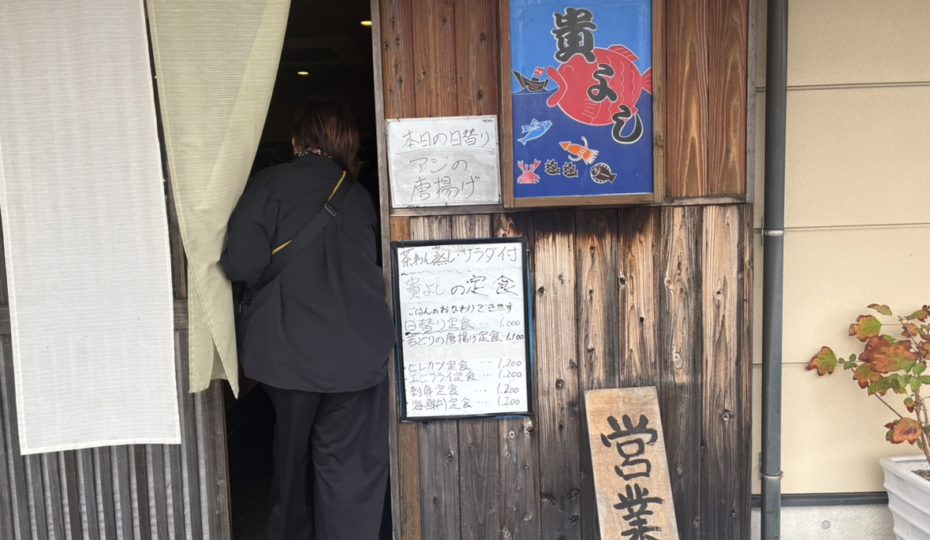 貴よし
本日の日替り
アジの
唐揚げ
茶わん蒸し・サラダ付
貴よしの定食
ごはんのおかわりできます
日替り定食 … 1,000
・若どりの唐揚げ定食・1,100
・ヒレカツ定食 … 1,200
・エビフライ定食 … 1,200
・刺身定食 … 1,200
・海鮮丼定食 … 1,200
営業